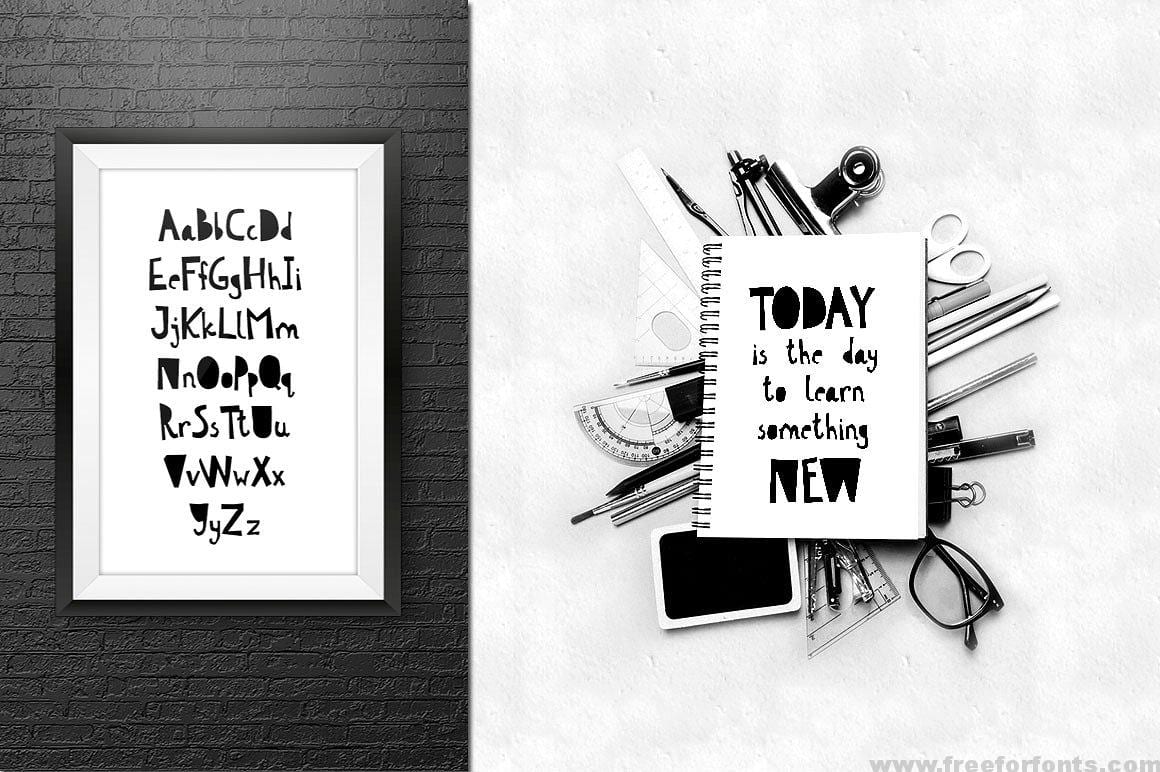 AaBbCcDd
EeFfGgHhIi
JjKkLlMm
NnOoPpQq
RrSsTtUu
VvWwXx
YyZz
TODAY
is the day
to learn
something
NEW
www.freeforfonts.com